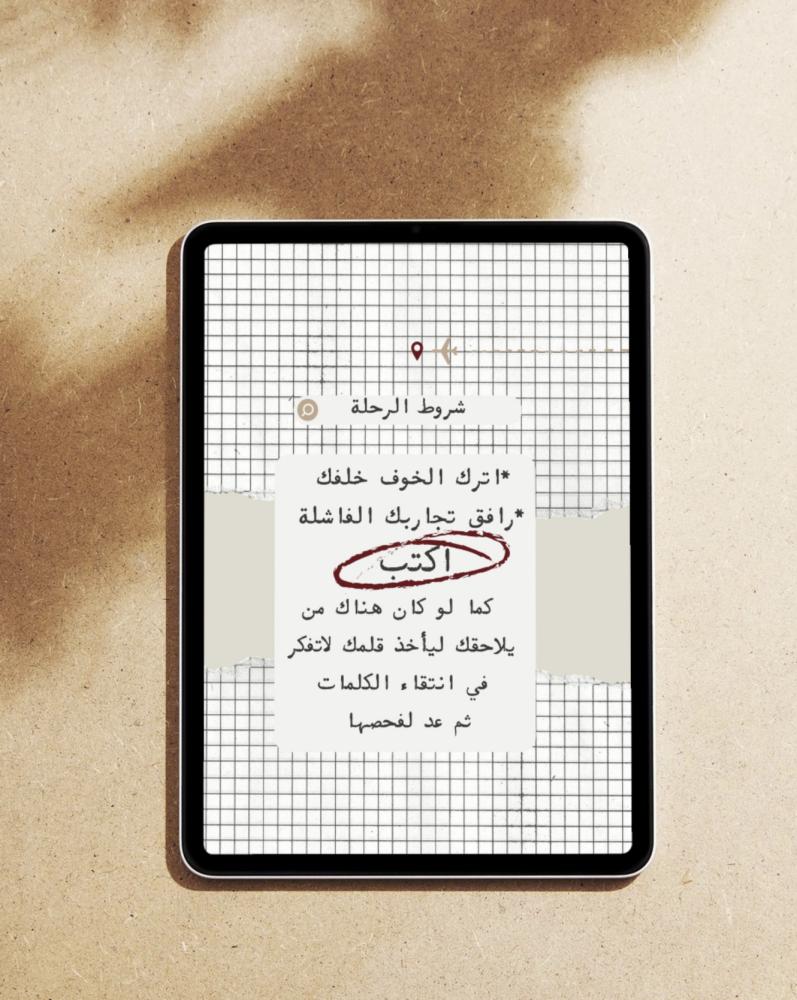 شروط الرحلة
*اترك الخوف خلفك
*رافق تجاربك الفاشلة
اكتب
كما لو كان هناك من
يلاحقك ليأخذ قلمك لاتفكر
في انتقاء الكلمات
ثم عد لفحصها